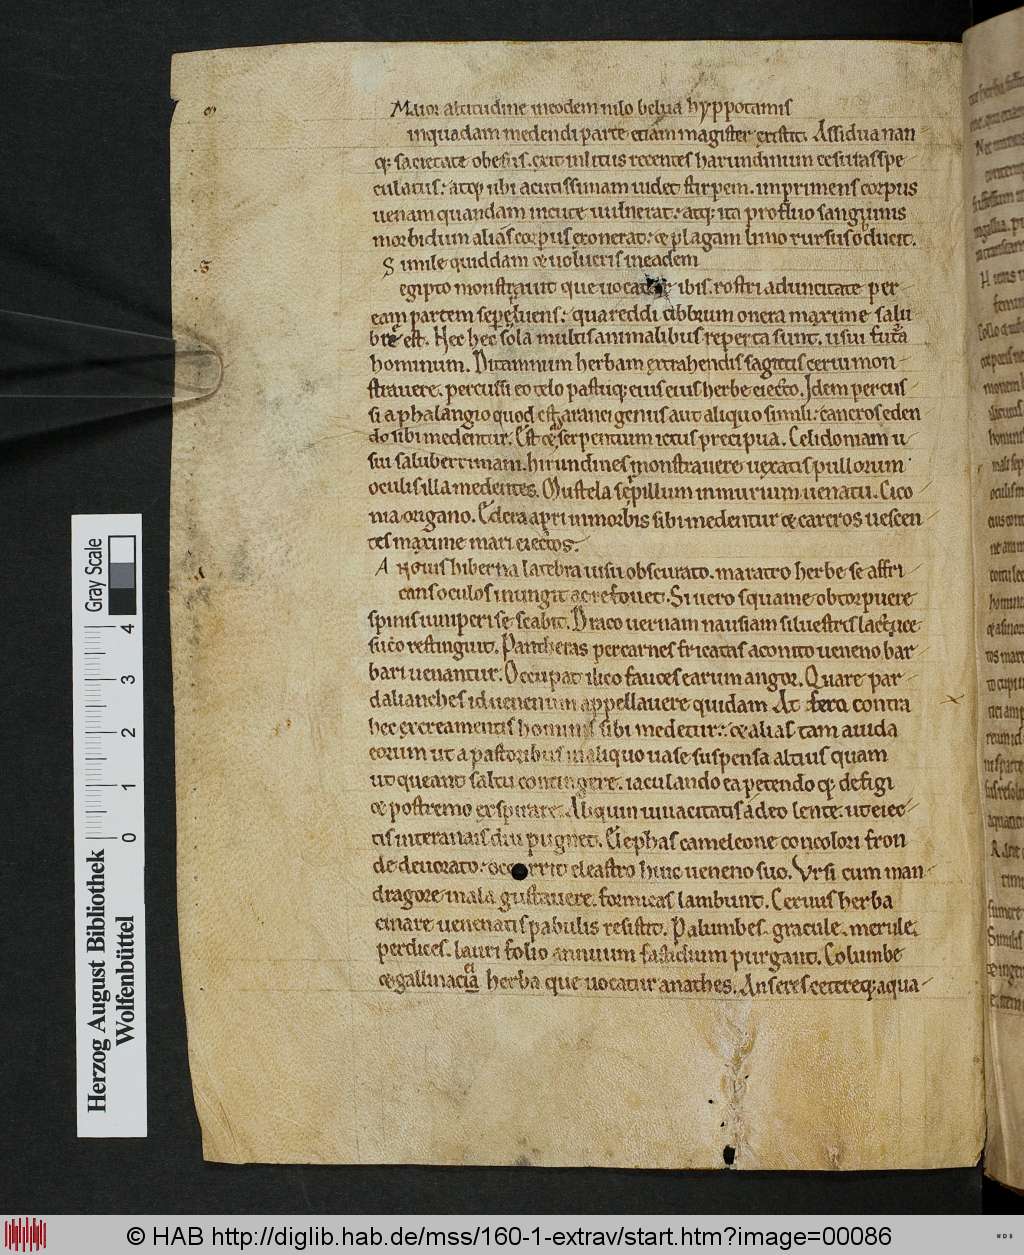 Maior altitudine ineodem nilo belua hyppotamis
inquadam medendi parte etiam magister existit. Assidua nan
q; sacietate obesus. exit inlitus recentes harundinum cesuras spe
culatus: atq; ubi acutissimam uidet stirpem. inprimens corpus
uenam quandam incute uulnerat: atq; ita profluo sanguinis
morbidum alias corpus exonerat: & plagam limo rursus obducit.
Simile quiddam & uolueris ineadem
egipto monstrauit que uocatur ibis. rostri aduncitate per
eam partem se perluens: qua reddi cibbum onera maxime salu
bre est. Nec hec sola multis animalibus reperta sunt. usui futura
hominum. Ditamnum herbam extrahendis sagittis cerui mon
strauere. percussi eo telo pastuq; eius eius herbe eiecto. Idem percus
si a phalangio quod est aranei genus aut aliquo simili: cancros eden
do sibi medentur. Est & serpentium ictus precipua. Celidoniam u
sui saluberrimam. hirundines monstrauere uexatis pullorum
oculis illa medentes. Mustela sepillum inmurium uenatu. Cico
nia origano. Edera apri inmorbis sibi medentur & carcros uescen
tes maxime mari eiectos.
Anguis hiberna latebra uisu obscurato. maratro herbe se affri
cans oculos inungit ac refouet. Si uero squame obtorpuere
spinis iuniperi se scabit. Draco uernam nausiam siluestris lactuce
suco restinguit. Pantheras percarnes fricatas aconito ueneno bar
bari uenantur. Occupat ilico fauces earum angor. Quare par
dalianches id uenenum appellauere quidam At fera contra
hec excreamentis hominis sibi medetur: & alias tam auida
eorum ut a pastoribus inaliquo uase suspensa altius quam
ut queant saltu contingere. iaculando ea petendo q; defigi
& postremo exspirare. Alioquin uiuacitatis adeo lente. ut eiec
tis interanais diu pugnet. Elephas cameleone concolori fron
de deuorato: occurrit eleastro huic ueneno suo. Vrsi cum man
dragore mala gustauere. formicas lambunt. Ceruus herba
cinare uenenatis pabulis resistit. Palumbes. gracule. merule.
perdices. lauri folio annuum fastidium purgant. Columbe
& gallinacia herba que uocatur anathes. Anseres ceteręq; aqua
Herzog August Bibliothek
Wolfenbüttel
Gray Scale
0 1 2 3 4
© HAB http://diglib.hab.de/mss/160-1-extrav/start.htm?image=00086